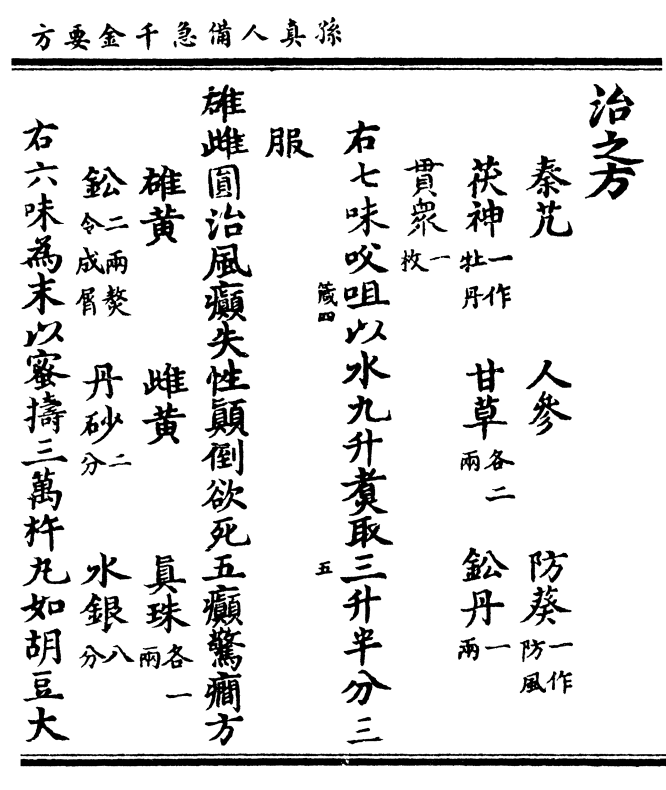 孫真人備急千金要方
治之方
秦艽　人參　防葵一作防風
茯神一作牡丹　甘草各二兩　鈆丹一兩
貫衆一枚
右七味㕮咀以水九升煑取三升半分三
服
箴四
五
雄雌圓治風癲失性顛倒欲死五癲驚癎方
雄黄　雌黄　眞珠各一兩
鈆二兩熬令成屑　丹砂二分　水銀八分
右六味為末以蜜擣三萬杵丸如胡豆大